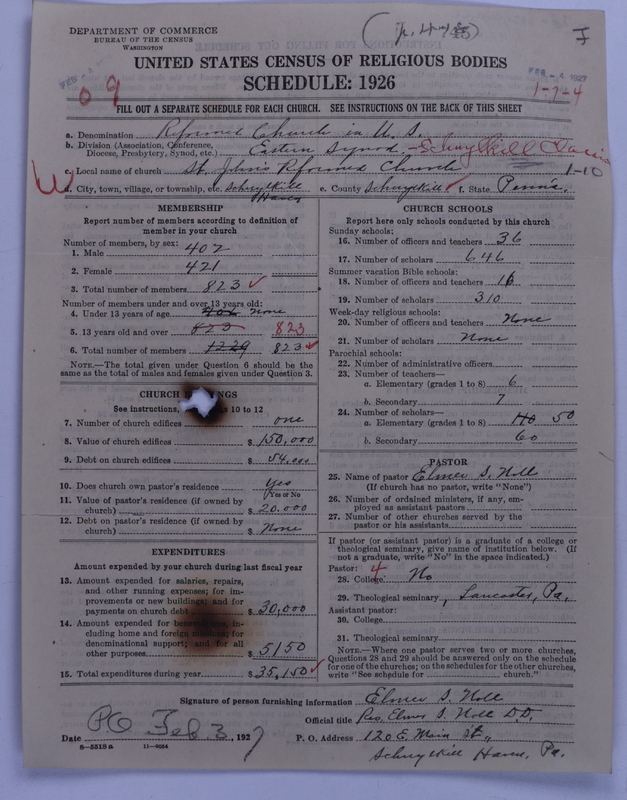 DEPARTMENT OF COMMERCE
BUREAU OF THE CENSUS
WASHINGTON
UNITED STATES CENSUS OF RELIGIOUS BODIES
SCHEDULE: 1926
FEB - 4 1927
09
1-7-4
FILL OUT A SEPARATE SCHEDULE FOR EACH CHURCH. SEE INSTRUCTIONS ON THE BACK OF THIS SHEET
a. Denomination Reformed Church in U. S.
b. Division (Association, Conference, Diocese, Presbytery, Synod, etc.) Eastern Synod - Schuylkill Classis
c. Local name of church St. John's Reformed Church 1-10
W
d. City, town, village, or township, etc. Schuylkill Haven e. County Schuylkill f. State Penna.
MEMBERSHIP
Report number of members according to definition of member in your church
Number of members, by sex:
1. Male 402
2. Female 421
3. Total number of members 823
Number of members under and over 13 years old:
4. Under 13 years of age none
5. 13 years old and over 823 823
6. Total number of members 1229 823
NOTE.—The total given under Question 6 should be the same as the total of males and females given under Question 3.
CHURCH
See instructions, 10 to 12
7. Number of church edifices one
8. Value of church edifices $ 150,000
9. Debt on church edifices $ 54,000
10. Does church own pastor's residence Yes
Yes or No
11. Value of pastor's residence (if owned by church) $ 20.000
12. Debt on pastor's residence (if owned by church) $ None
EXPENDITURES
Amount expended by your church during last fiscal year
13. Amount expended for salaries, repairs, and other running expenses; for improvements or new buildings; and for payments on church debt $ 30,000
14. Amount expended for including home and foreign for denominational support; and for all other purposes $ 5150
15. Total expenditures during year $ 35,150
CHURCH SCHOOLS
Report here only schools conducted by this church
Sunday schools:
16. Number of officers and teachers 36
17. Number of scholars 646
Summer vacation Bible schools:
18. Number of officers and teachers 16
19. Number of scholars 310
Week-day religious schools:
20. Number of officers and teachers None
21. Number of scholars None
Parochial schools:
22. Number of administrative officers
23. Number of teachers—
a. Elementary (grades 1 to 8) 6
b. Secondary 7
24. Number of scholars—
a. Elementary (grades 1 to 8) 110 50
b. Secondary 60
PASTOR
25. Name of pastor Elmer S. Noll
(If church has no pastor, write "None")
26. Number of ordained ministers, if any, employed as assistant pastors
27. Number of other churches served by the pastor or his assistants
If pastor (or assistant pastor) is a graduate of a college or theological seminary, give name of institution below. (If not a graduate, write "No" in the space indicated.)
Pastor: 4
28. College No
29. Theological seminary, Lancaster, Pa.
Assistant pastor:
30. College
31. Theological seminary
NOTE.—Where one pastor serves two or more churches, Questions 28 and 29 should be answered only on the schedule for one of the churches; on the schedules for the other churches, write "See schedule for church."
Signature of person furnishing information Elmer S. Noll
Official title Rev. Elmer S. Noll DD,
Date PO Feb 3, 1927 P. O. Address 120 E. Main St.,
Schuylkill Haven, Pa.
8-5518a 11-9064